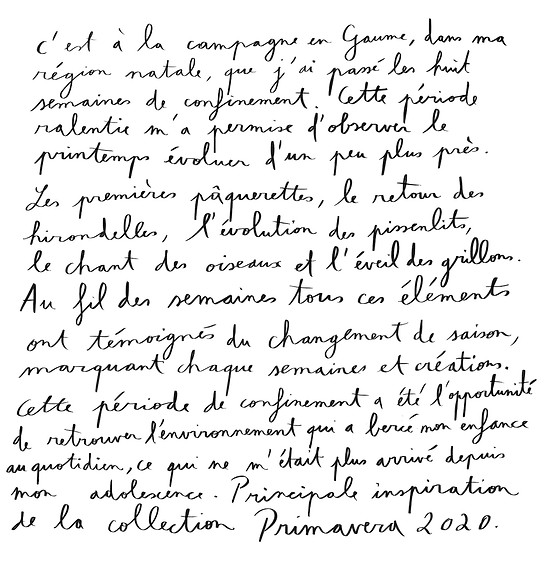 c'est à la campagne en Gaume, dans ma
région natale, que j'ai passé les huit
semaines de confinement. Cette période
ralentie m'a permise d'observer le
printemps évoluer d'un peu plus près.
Les premières pâquerettes, le retour des
hirondelles, l'évolution des pissenlits,
le chant des oiseaux et l'éveil des grillons.
Au fil des semaines tous ces éléments
ont témoignés du changement de saison,
marquant chaque semaines et créations.
Cette période de confinement a été l'opportunité
de retrouver l'environnement qui a bercé mon enfance
au quotidien, ce qui ne m'était plus arrivé depuis
mon adolescence. Principale inspiration
de la collection Primavera 2020.